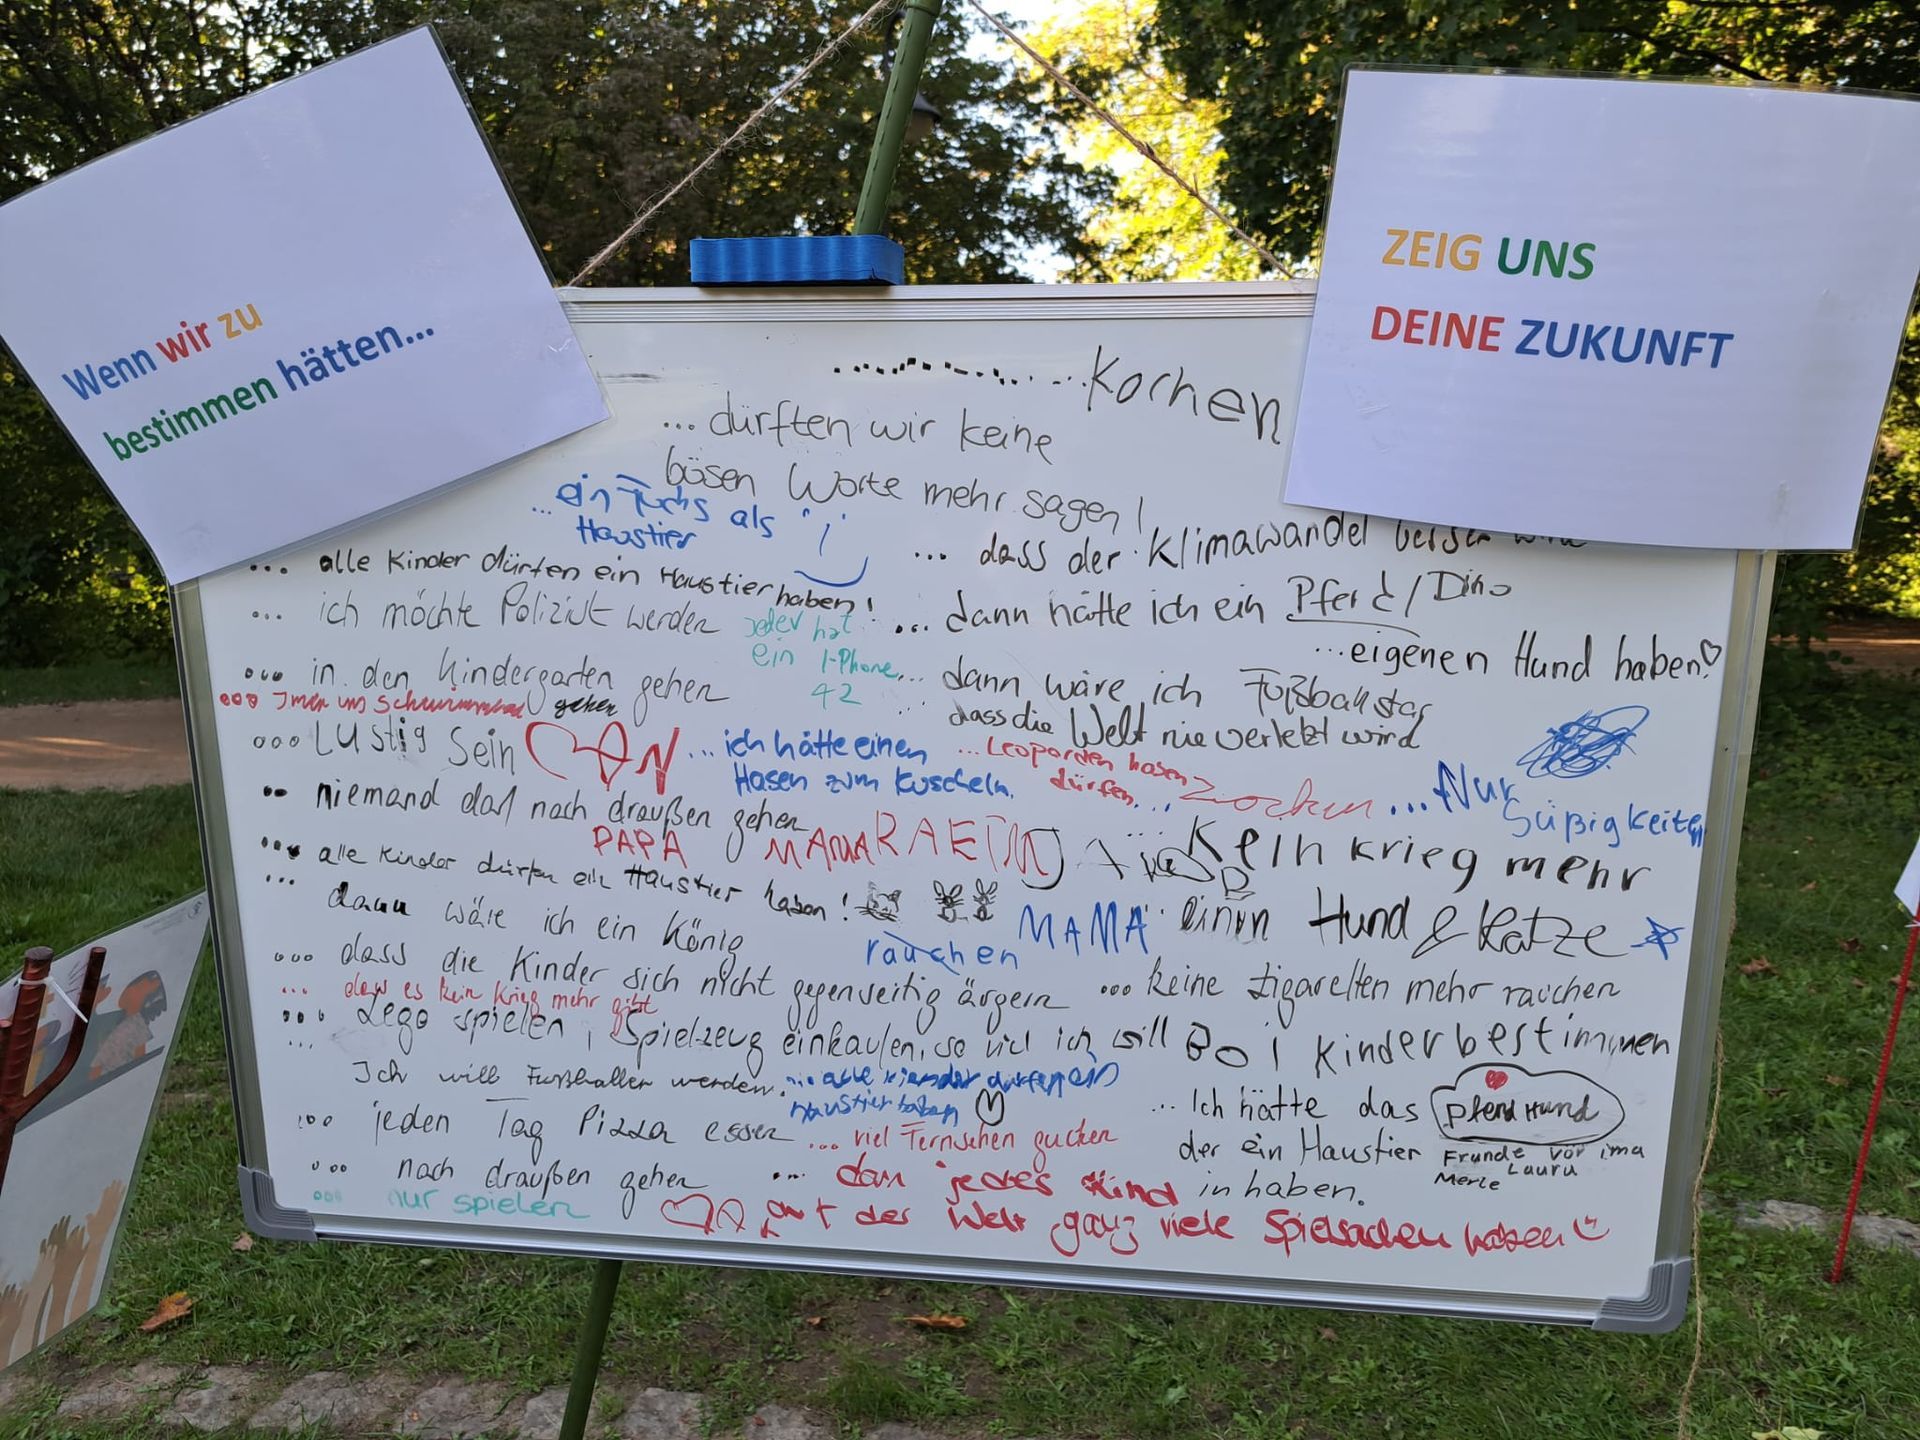 Wenn wir zu
bestimmen hätten...
ZEIG UNS
DEINE ZUKUNFT
...Kochen
... dürften wir keine
bösen Worte mehr sagen!
... ein Fuchs als
Haustier
... dass der Klimawandel
... alle Kinder dürfen ein Haustier haben!
... dann hätte ich ein Pferd / Dino
... ich möchte Polizist werden
jeder hat
ein I-Phone
42
...eigenen Hund haben!
... in den Kindergarten gehen
... dann wäre ich Fußballstar
... Imer ins Schwimmbad gehen
... dass die Welt nie verletzt wird
... Lustig Sein
... ich hätte einen
Hasen zum Kuscheln.
... Leoparden haben
dürfen.
... zocken
... Nur
Süßigkeiten
.. niemand darf nach draußen gehen
PAPA MAMA
... Kein krieg mehr
... alle Kinder dürfen ein Haustier haben!
... dann wäre ich ein König
rauchen
MAMA
einen Hund & Katze
... dass die Kinder sich nicht gegenseitig ärgern
... keine Zigaretten mehr rauchen
... dass es kein Krieg mehr gibt
... Lego spielen, Spielzeug einkaufen, so viel ich will
kinder bestimmen
... Ich will Fußballer werden.
... alle kinder dürfen ein
Haustier haben
... Ich hätte das Pferd Hund
... jeden Tag Pizza essen
... viel Fernsehen gucken
der ein Haustier
Frunde vor ima
Merle Laura
... nach draußen gehen
... dan jedes Kind
in haben.
... nur spielen
auf der Welt ganz viele Spielsachen haben